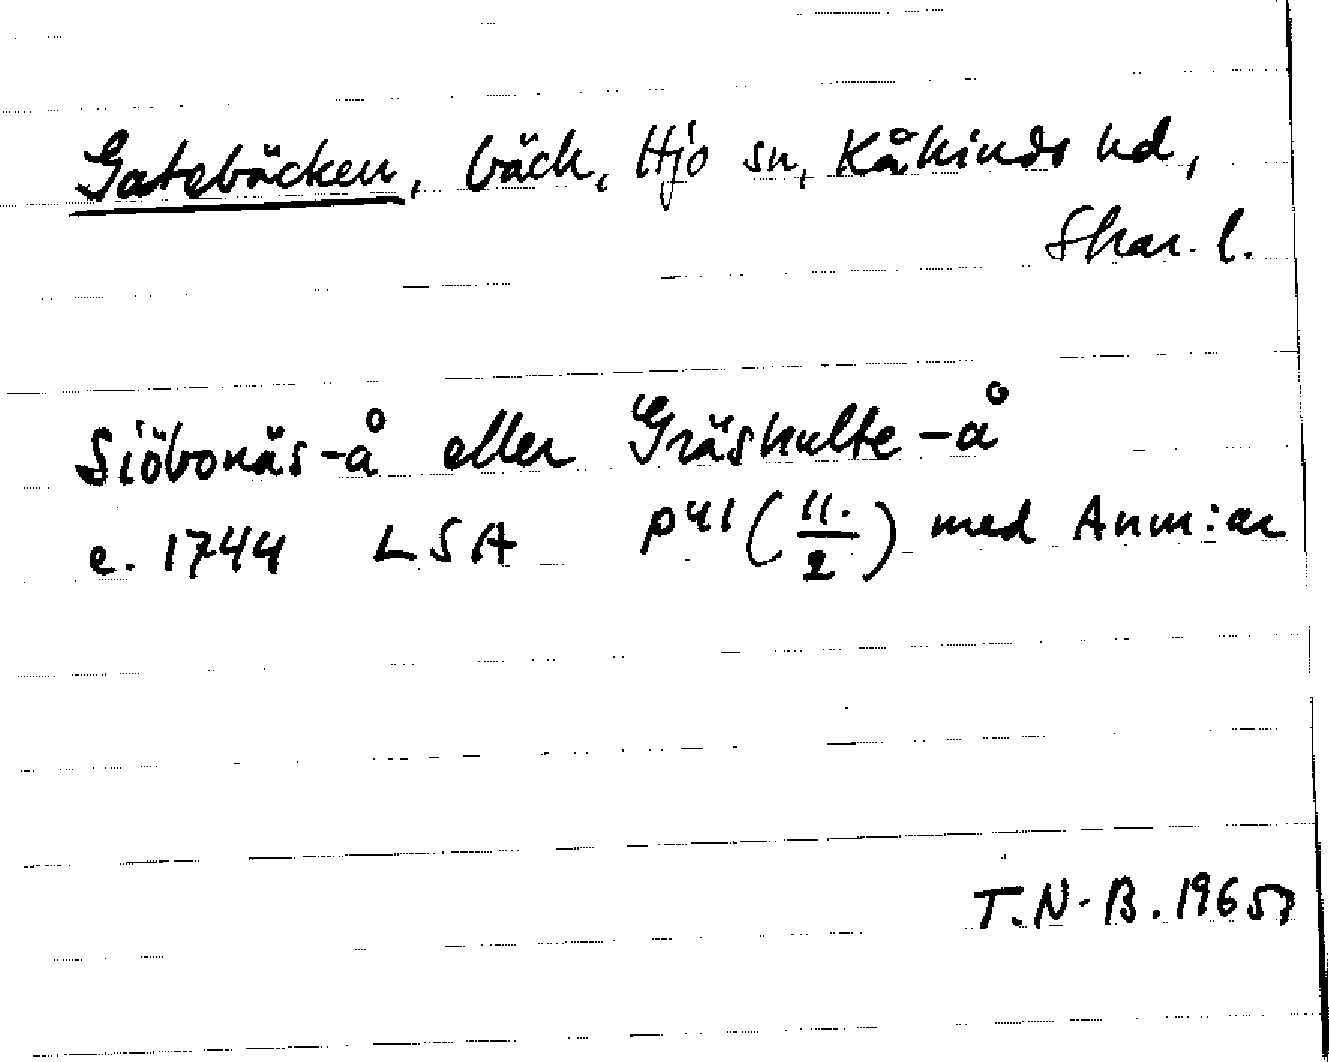 Gatebäcken, bäck, Hjo sn, Kåkinds hd,
Skar. l.
Siöbonäs-å eller Gräshulte-å
e. 1744 LSA P41 (11./2) med Anm:ar
T.N-B. 1965